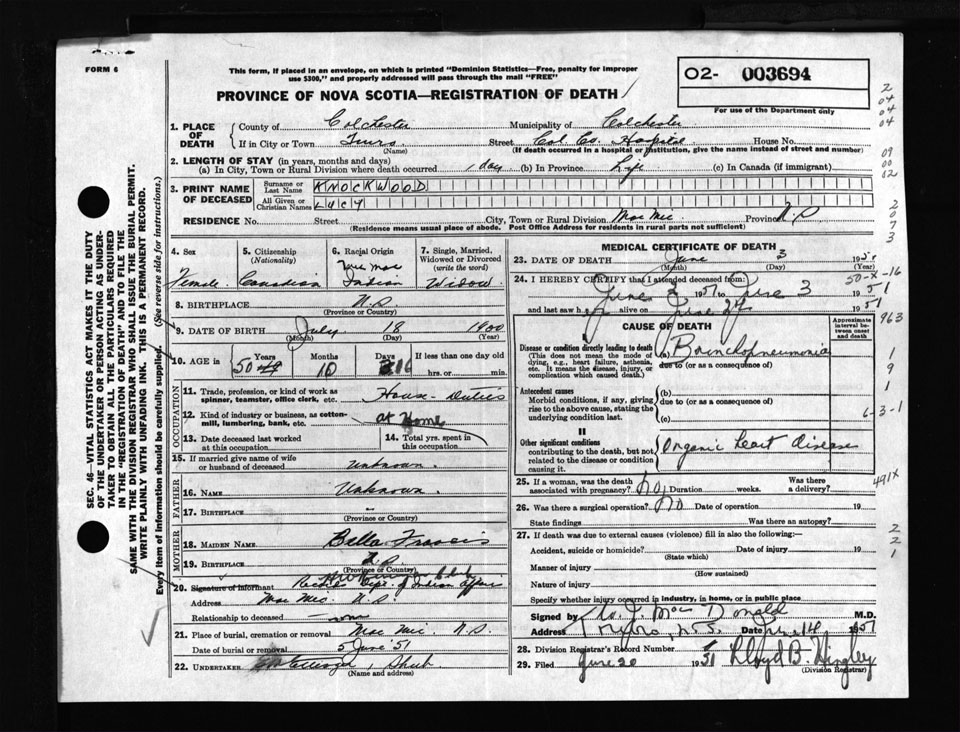 FORM 6
This form, if placed in an envelope, on which is printed "Dominion Statistics—Free, penalty for improper
use $300," and properly addressed will pass through the mail "FREE"
02- 003694
For use of the Department only
PROVINCE OF NOVA SCOTIA—REGISTRATION OF DEATH
1. PLACE OF DEATH
County of Colchester Municipality of Colchester
If in City or Town Truro (Name) Street Col. Co. Hospital House No.
(If death occurred in a hospital or institution, give the name instead of street and number)
2. LENGTH OF STAY (in years, months and days)
(a) In City, Town or Rural Division where death occurred 1 day (b) In Province Life (c) In Canada (if immigrant)
3. PRINT NAME OF DECEASED
Surname or Last Name KNOCKWOOD
All Given or Christian Names LUCY
RESIDENCE No. Street City, Town or Rural Division Mac Mic Province N.S
(Residence means usual place of abode. Post Office Address for residents in rural parts not sufficient)
4. Sex Female
5. Citizenship (Nationality) Canadian
6. Racial Origin Mic Mac Indian
7. Single, Married, Widowed or Divorced (write the word) Widow
8. BIRTHPLACE N.S
(Province or Country)
9. DATE OF BIRTH July 18 1900
(Month) (Day) (Year)
10. AGE in Years 50 Months 10 Days 16 If less than one day old
hrs. or min.
OCCUPATION
11. Trade, profession or kind of work as spinner, teamster, office clerk, etc. House-Duties
12. Kind of industry or business, as cotton-mill, lumbering, bank, etc. at Home
13. Date deceased last worked at this occupation
14. Total yrs. spent in this occupation
15. If married give name of wife or husband of deceased Unknown.
FATHER
16. NAME Unknown.
17. BIRTHPLACE "
(Province or Country)
MOTHER
18. MAIDEN NAME Bella Francis
19. BIRTHPLACE N.S.
(Province or Country)
20. Signature of informant Dept. of Indian Affairs
Address Mac Mic. N.S.
Relationship to deceased none
21. Place of burial, cremation or removal Mac Mic N.S.
Date of burial or removal 5 June '51
22. UNDERTAKER Shub.
(Name and address)
MEDICAL CERTIFICATE OF DEATH
23. DATE OF DEATH June 3 195
(Month) (Day) (Year)
50-X-16
24. I HEREBY CERTIFY that I attended deceased from:
June 2 1951 to June 3 1951
and last saw her alive on June 2 1951
CAUSE OF DEATH
Approximate interval between onset and death
I
Disease or condition directly leading to death
(This does not mean the mode of dying, e.g., heart failure, asthenia, etc. It means the disease, injury, or complication which caused death.)
(a) Bronchopneumonia
due to (or as a consequence of)
Antecedent causes
Morbid conditions, if any, giving rise to the above cause, stating the underlying condition last.
(b)
due to (or as a consequence of)
(c)
II
Other significant conditions
contributing to the death, but not related to the disease or condition causing it.
Organic heart disease
25. If a woman, was the death associated with pregnancy? No Duration weeks. Was there a delivery?
26. Was there a surgical operation? No Date of operation 19
State findings Was there an autopsy?
27. If death was due to external causes (violence) fill in also the following:
Accident, suicide or homicide? Date of injury 19
(State which)
Manner of injury
(How sustained)
Nature of injury
Specify whether injury occurred in industry, in home, or in public place
Signed by J. Mac Donald M.D.
Address Truro, N.S. Date June 14 1951
28. Division Registrar's Record Number
29. Filed June 20 1951 Lloyd B. Hingley
(Division Registrar)
2
04
04
04
09
00
02
2
0
7
3
963
1
9
1
6-3-1
491X
2
2
1
SEC. 46—VITAL STATISTICS ACT MAKES IT THE DUTY
OF THE UNDERTAKER OR PERSON ACTING AS UNDER-
TAKER TO OBTAIN ALL THE PARTICULARS REQUIRED
IN THE "REGISTRATION OF DEATH" AND TO FILE THE
SAME WITH THE DIVISION REGISTRAR WHO SHALL ISSUE THE BURIAL PERMIT.
WRITE PLAINLY WITH UNFADING INK. THIS IS A PERMANENT RECORD.
Every item of information should be carefully supplied. (See reverse side for instructions.)